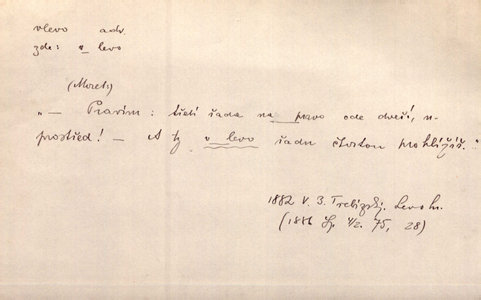 vlevo adv.
zde: v levo
(Moret:)
„— Pravím: třetí řada na pravo ode dveří, u-
prostřed! — A ty v levo řadu čtvrtou prohlížíš."
1882 V. B. Třebízský. Levohr.
(1886 Sp. 4/2. 75, 28)